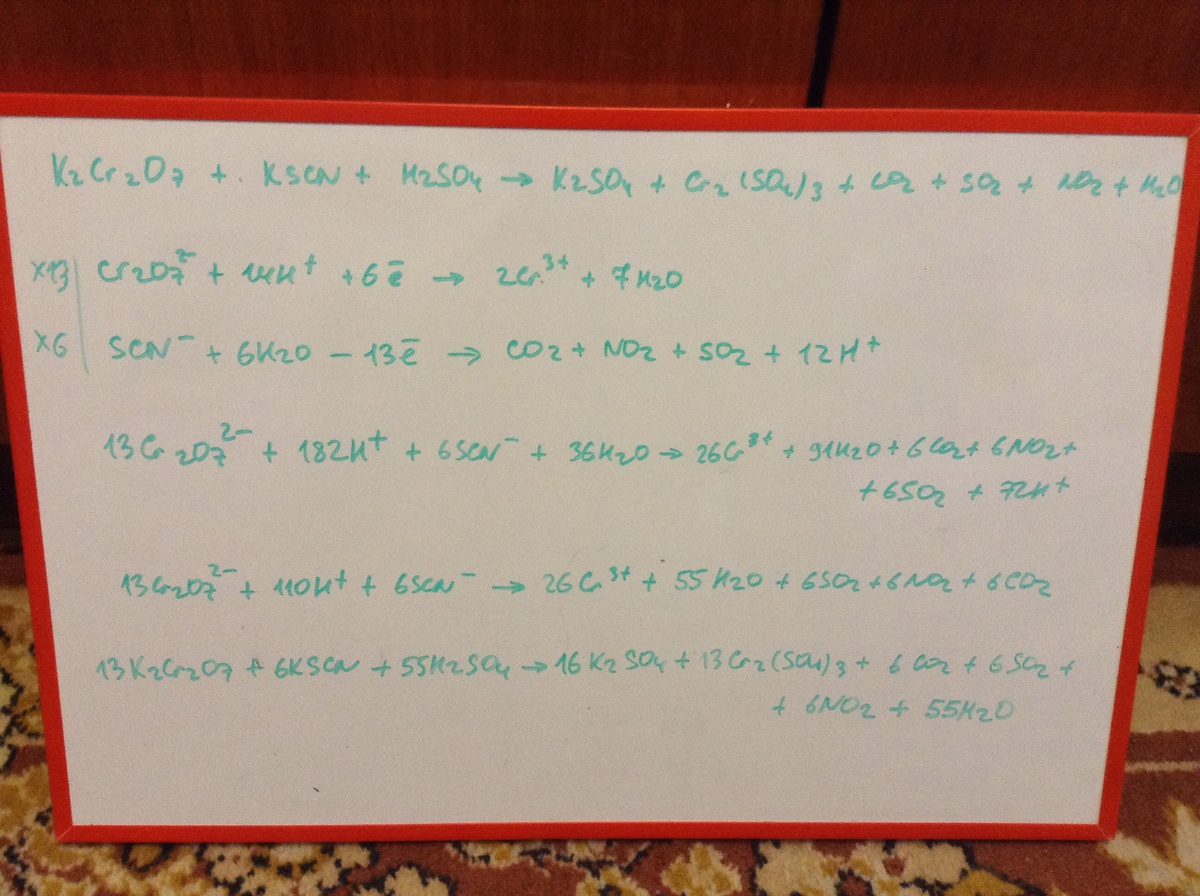 K₂Cr₂O₇ + KSCN + H₂SO₄ → K₂SO₄ + Cr₂(SO₄)₃ + CO₂ + SO₂ + NO₂ + H₂O
×13 | Cr₂O₇²⁻ + 14H⁺ + 6ē → 2Cr³⁺ + 7H₂O
×6 | SCN⁻ + 6H₂O − 13ē → CO₂ + NO₂ + SO₂ + 12H⁺
13Cr₂O₇²⁻ + 182H⁺ + 6SCN⁻ + 36H₂O → 26Cr³⁺ + 91H₂O + 6CO₂ + 6NO₂ +
+ 6SO₂ + 72H⁺
13Cr₂O₇²⁻ + 110H⁺ + 6SCN⁻ → 26Cr³⁺ + 55H₂O + 6SO₂ + 6NO₂ + 6CO₂
13K₂Cr₂O₇ + 6KSCN + 55H₂SO₄ → 16K₂SO₄ + 13Cr₂(SO₄)₃ + 6CO₂ + 6SO₂ +
+ 6NO₂ + 55H₂O